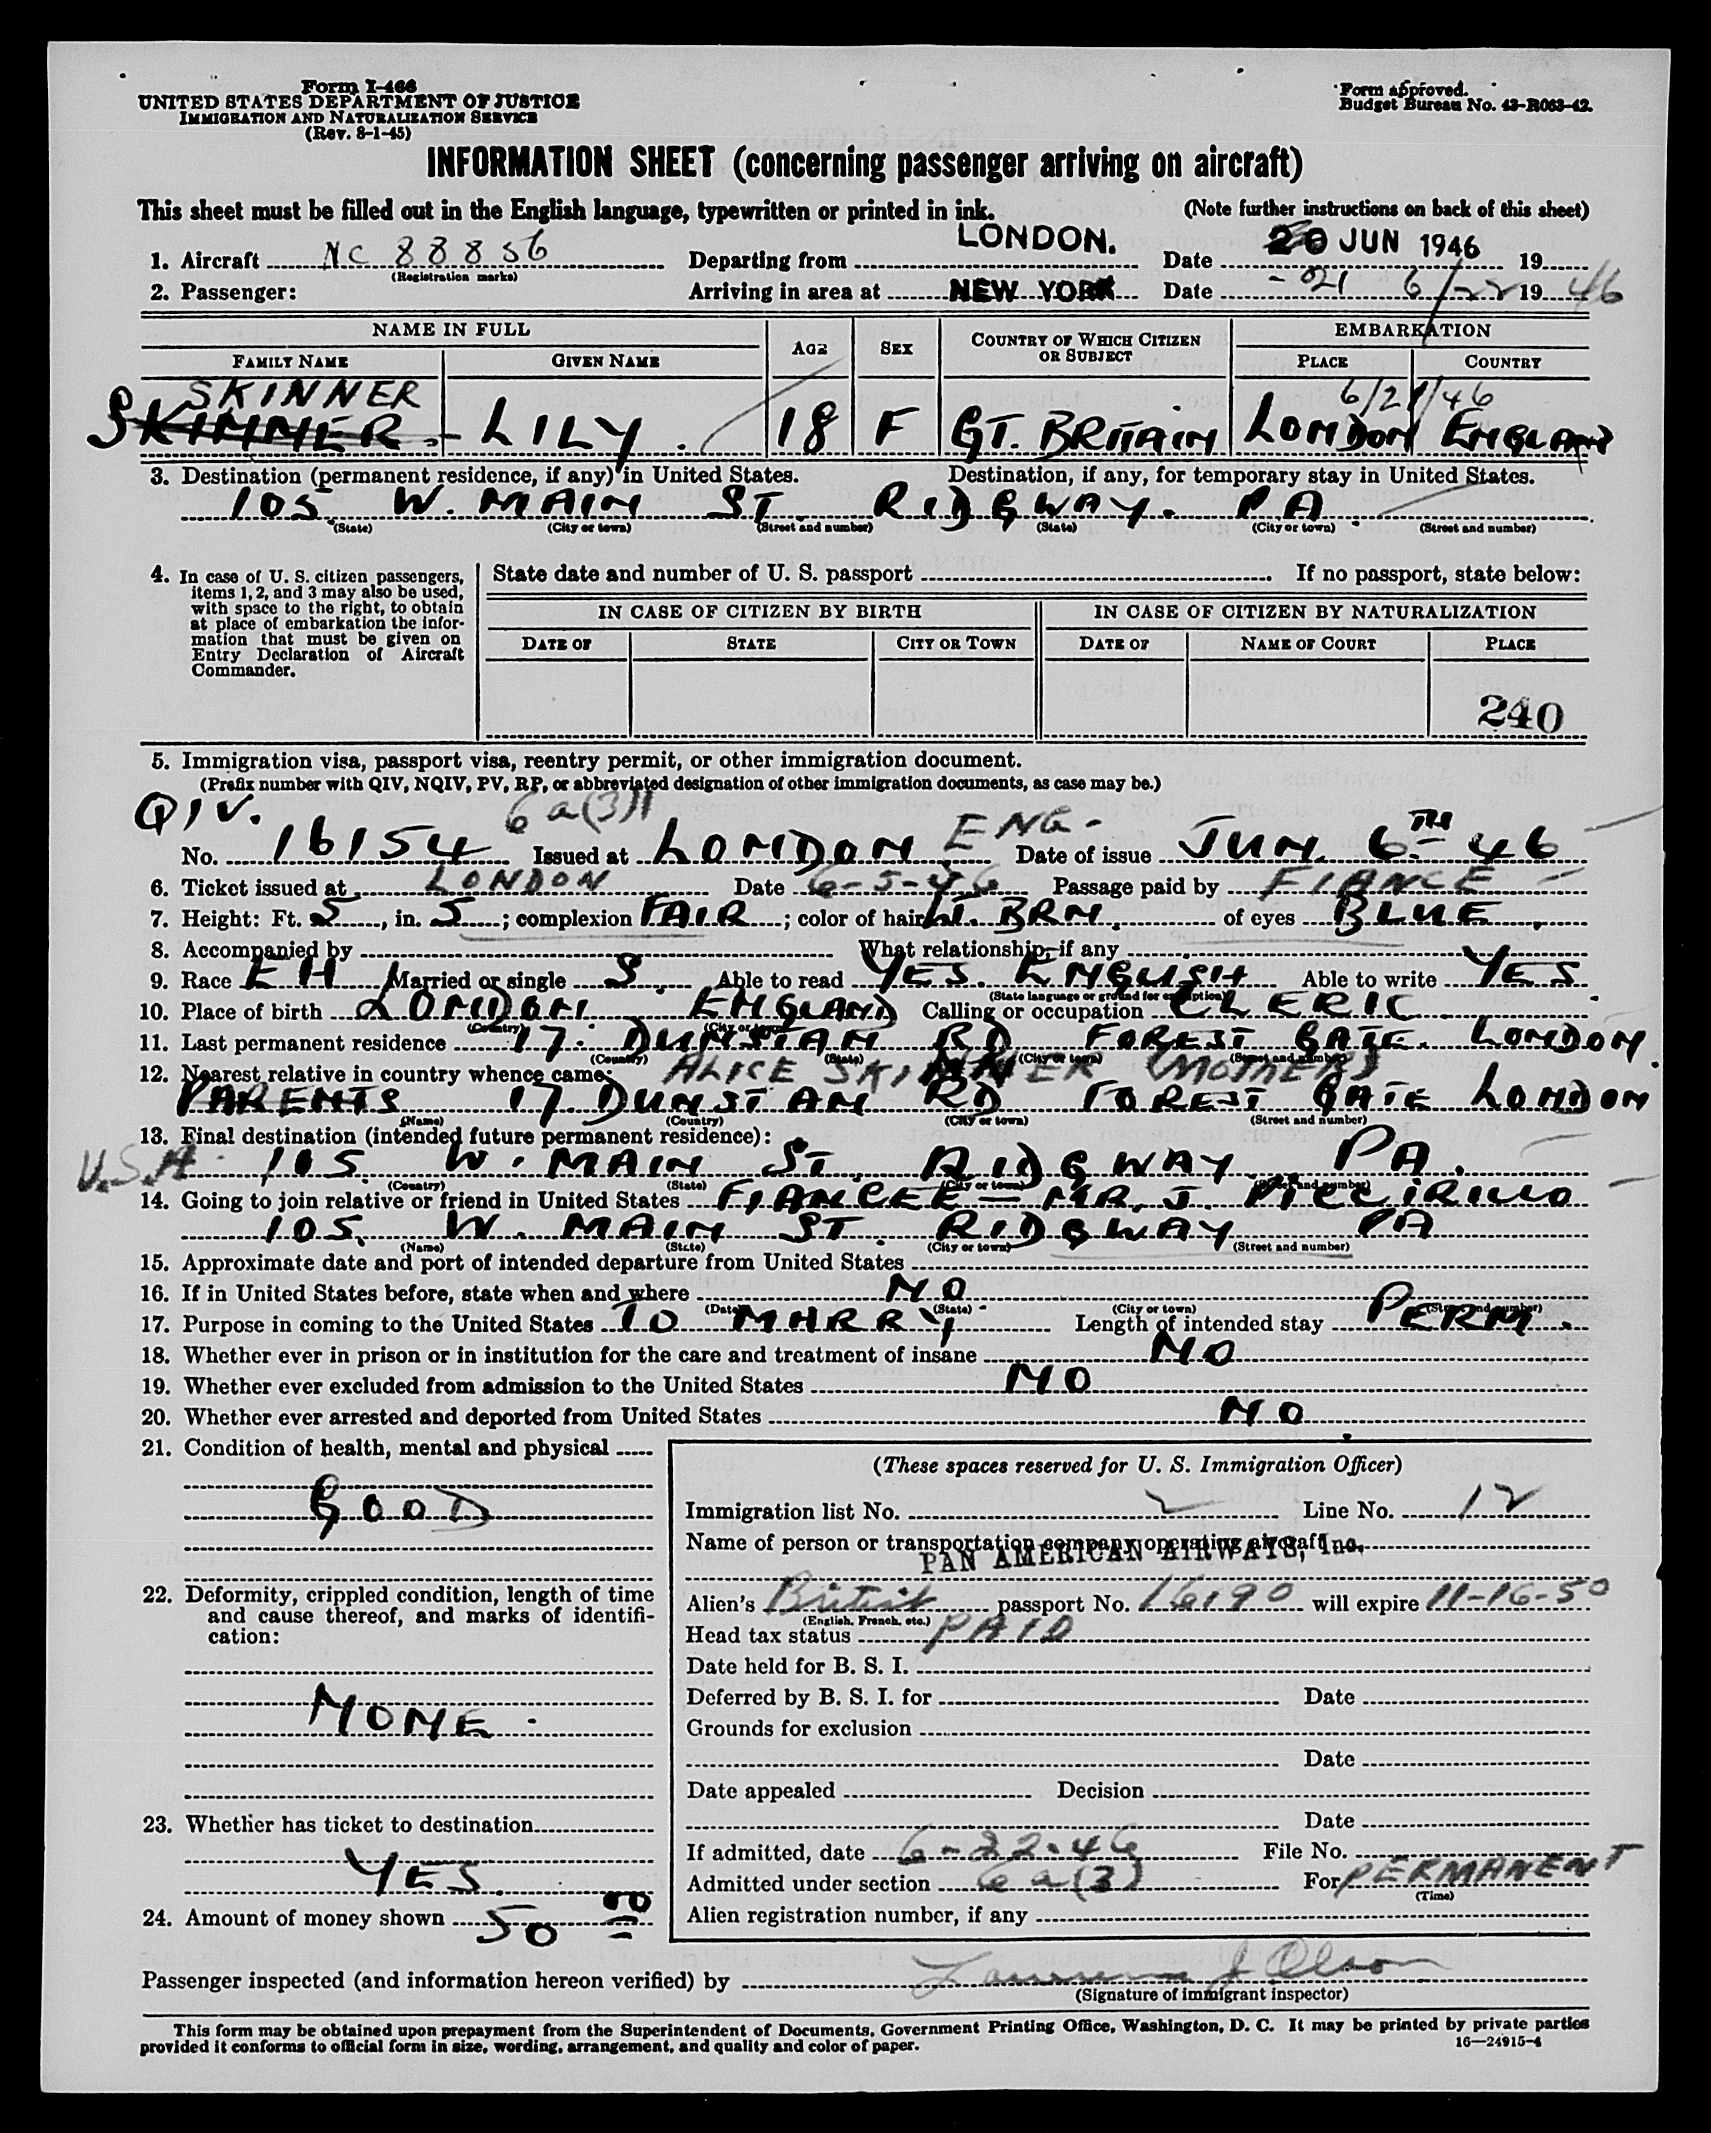 Form I-466
UNITED STATES DEPARTMENT OF JUSTICE
IMMIGRATION AND NATURALIZATION SERVICE
(Rev. 8-1-45)
Form approved.
Budget Bureau No. 43-R063-42.
INFORMATION SHEET (concerning passenger arriving on aircraft)
This sheet must be filled out in the English language, typewritten or printed in ink. (Note further instructions on back of this sheet)
1. Aircraft NC 88856 Departing from LONDON. Date 20 JUN 1946 19
(Registration marks)
2. Passenger: Arriving in area at NEW YORK Date 21 6/22 1946
NAME IN FULL AGE SEX COUNTRY OF WHICH CITIZEN OR SUBJECT EMBARKATION
FAMILY NAME GIVEN NAME PLACE COUNTRY
SKINNER 6/21/46
SKINNER LILY. 18 F GT. BRITAIN LONDON ENGLAND
3. Destination (permanent residence, if any) in United States. Destination, if any, for temporary stay in United States.
105 W. MAIN ST RIDGWAY. PA
(State) (City or town) (Street and number) (State) (City or town) (Street and number)
4. In case of U. S. citizen passengers, items 1, 2, and 3 may also be used, with space to the right, to obtain at place of embarkation the information that must be given on Entry Declaration of Aircraft Commander.
State date and number of U. S. passport If no passport, state below:
IN CASE OF CITIZEN BY BIRTH IN CASE OF CITIZEN BY NATURALIZATION
DATE OF STATE CITY OR TOWN DATE OF NAME OF COURT PLACE
240
5. Immigration visa, passport visa, reentry permit, or other immigration document.
(Prefix number with QIV, NQIV, PV, RP, or abbreviated designation of other immigration documents, as case may be.)
QIV. 6a(3)
No. 16154 Issued at LONDON ENG- Date of issue JUN. 6TH 46
6. Ticket issued at LONDON Date 6-5-46 Passage paid by FIANCE
7. Height: Ft. 5, in. 5; complexion FAIR; color of hair LT. BRN. of eyes BLUE
8. Accompanied by What relationship, if any
9. Race EH Married or single S. Able to read YES. ENGLISH Able to write YES
(State language or ground for exemption)
10. Place of birth LONDON. ENGLAND Calling or occupation CLERIC
(Country) (City or town)
11. Last permanent residence 17. DUNSTAN RD FOREST GATE. LONDON.
(Country) (State) (City or town) (Street and number)
12. Nearest relative in country whence came: ALICE SKINNER (MOTHER)
PARENTS 17 DUNSTAN RD FOREST GATE LONDON
(Name) (Country) (City or town) (Street and number)
13. Final destination (intended future permanent residence):
U.S.A. 105. W. MAIN ST. RIDGWAY PA.
(Country) (State) (City or town) (Street and number)
14. Going to join relative or friend in United States FIANCEE = MR. J. PICCIRILLO
105. W. MAIN ST. RIDGWAY PA
(Name) (State) (City or town) (Street and number)
15. Approximate date and port of intended departure from United States
16. If in United States before, state when and where NO
(Date) (State) (City or town) (Street and number)
17. Purpose in coming to the United States TO MARRY Length of intended stay PERM.
18. Whether ever in prison or in institution for the care and treatment of insane NO
19. Whether ever excluded from admission to the United States NO
20. Whether ever arrested and deported from United States NO.
21. Condition of health, mental and physical
GOOD
22. Deformity, crippled condition, length of time and cause thereof, and marks of identification:
NONE.
23. Whether has ticket to destination
YES.
24. Amount of money shown 50 00
(These spaces reserved for U. S. Immigration Officer)
Immigration list No. 2 Line No. 12
Name of person or transportation company operating aircraft
PAN AMERICAN AIRWAYS, Inc.
Alien's British passport No. 16190 will expire 11-16-50
(English, French, etc.)
Head tax status PAID
Date held for B. S. I.
Deferred by B. S. I. for Date
Grounds for exclusion
Date
Date appealed Decision
Date
If admitted, date 6-22-46 File No.
Admitted under section 6a(3) For PERMANENT
(Time)
Alien registration number, if any
Passenger inspected (and information hereon verified) by Lawrence J Olson
(Signature of immigrant inspector)
This form may be obtained upon prepayment from the Superintendent of Documents, Government Printing Office, Washington, D. C. It may be printed by private parties
provided it conforms to official form in size, wording, arrangement, and quality and color of paper. 16—24915-4